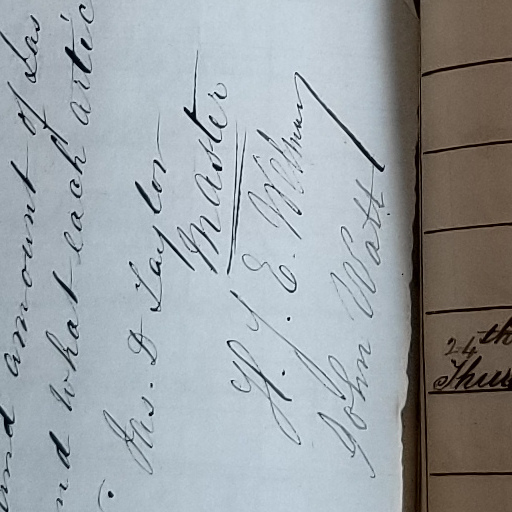 and amount of Las
nd what each artic
Jas. D Taylor
Master
H. J. E.
John Watt
24th
Thur